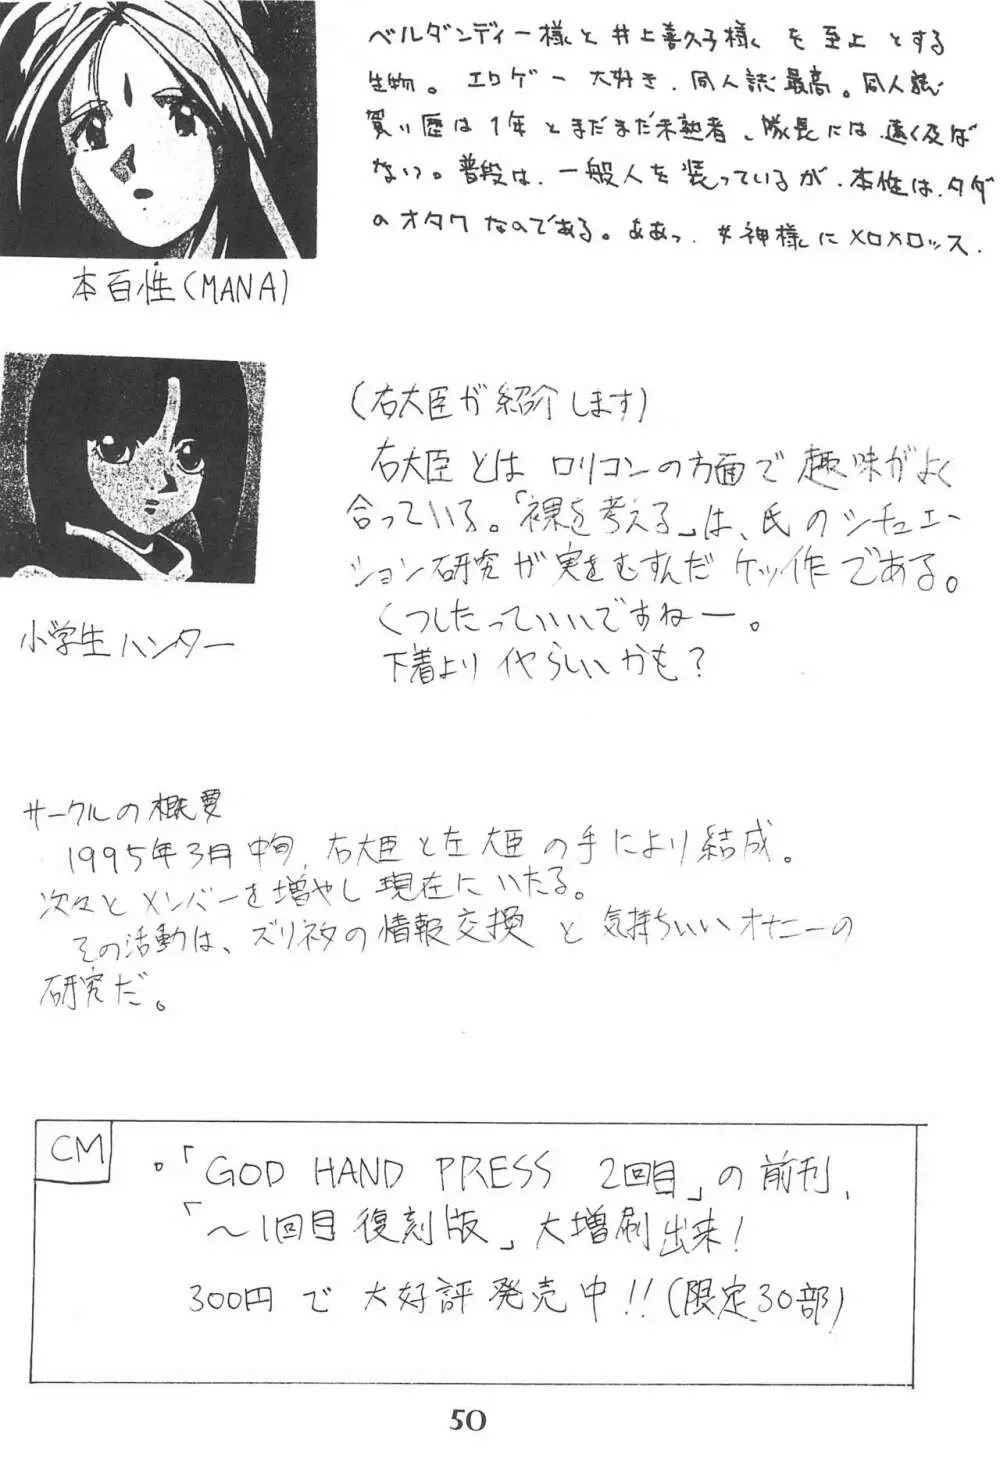 ベルダンディー様と井上喜久子様を至上とする
生物。エロゲー大好き、同人誌最高。同人誌
買い歴は1年とまだまだ未熟者、隊長には、遠く及ば
ない。普段は、一般人を装っているが、本性は、タダ
のオタクなのである。ああっ、女神様にメロメロッス。
本百性(MANA)
(右大臣が紹介します)
右大臣とはロリコンの方面で趣味がよく
合っている。「裸を考える」は、氏のシチュエー
ション研究が実をむすんだケッ作である。
くつしたっていいですねー。
下着よりイヤらしいかも?
小学生ハンター
サークルの概要
1995年3月中旬、右大臣と左大臣の手により結成。
次々とメンバーを増やし現在にいたる。
その活動は、ズリネタの情報交換と気持ちいいオナニーの
研究だ。
CM
・「GOD HAND PRESS 2回目」の前刊、
「～1回目復刻版」大増刷出来!
300円で大好評発売中!!(限定30部)
50